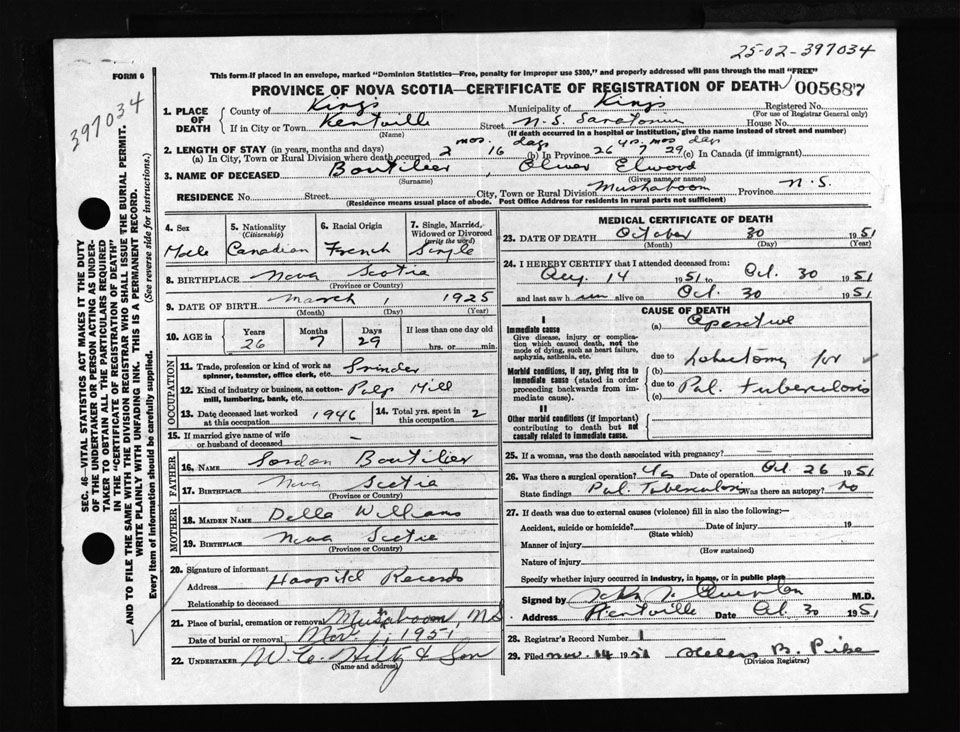 25-02-397034
397034
FORM 6
This form if placed in an envelope, marked "Dominion Statistics—Free, penalty for improper use $300," and properly addressed will pass through the mail "FREE"
PROVINCE OF NOVA SCOTIA—CERTIFICATE OF REGISTRATION OF DEATH 005687
SEC. 46—VITAL STATISTICS ACT MAKES IT THE DUTY
OF THE UNDERTAKER OR PERSON ACTING AS UNDER-
TAKER TO OBTAIN ALL THE PARTICULARS REQUIRED
IN THE "CERTIFICATE OF REGISTRATION OF DEATH"
AND TO FILE THE SAME WITH THE DIVISION REGISTRAR WHO SHALL ISSUE THE BURIAL PERMIT.
WRITE PLAINLY WITH UNFADING INK. THIS IS A PERMANENT RECORD.
Every item of information should be carefully supplied. (See reverse side for instructions.)
1. PLACE OF DEATH
County of Kings Municipality of Kings Registered No.
(For use of Registrar General only)
If in City or Town Kentville Street N.S. Sanatorium House No.
(Name) (If death occurred in a hospital or institution, give the name instead of street and number)
2. LENGTH OF STAY (in years, months and days)
(a) In City, Town or Rural Division where death occurred 2 mos. 16 days (b) In Province 26 yrs. 7 mos 29 days (c) In Canada (if immigrant)
3. NAME OF DECEASED Boutilier, Oliver Elwood
(Surname) (Given name or names)
RESIDENCE No. Street City, Town or Rural Division Mushaboom Province N.S.
(Residence means usual place of abode. Post Office Address for residents in rural parts not sufficient)
4. Sex Male
5. Nationality (Citizenship) Canadian
6. Racial Origin French
7. Single, Married, Widowed or Divorced (write the word) Single
8. BIRTHPLACE Nova Scotia
(Province or Country)
9. DATE OF BIRTH March 1 1925
(Month) (Day) (Year)
10. AGE in Years Months Days If less than one day old
26 7 29 hrs. or min.
OCCUPATION
11. Trade, profession or kind of work as spinner, teamster, office clerk, etc. Grinder
12. Kind of industry or business, as cotton-mill, lumbering, bank, etc. Pulp Mill
13. Date deceased last worked at this occupation 1946
14. Total yrs. spent in this occupation 2
15. If married give name of wife or husband of deceased —
FATHER
16. NAME Gordon Boutilier
17. BIRTHPLACE Nova Scotia
(Province or Country)
MOTHER
18. MAIDEN NAME Della Williams
19. BIRTHPLACE Nova Scotia
(Province or Country)
20. Signature of informant
Address Hospital Records
Relationship to deceased
21. Place of burial, cremation or removal Mushaboom, N.S
Date of burial or removal Nov. 1, 1951
22. UNDERTAKER W. C. Hiltz & Son
(Name and address)
MEDICAL CERTIFICATE OF DEATH
23. DATE OF DEATH October 30 1951
(Month) (Day) (Year)
24. I HEREBY CERTIFY that I attended deceased from:
Aug 14 1951 to Oct. 30 1951
and last saw him alive on Oct. 30 1951
CAUSE OF DEATH
I
Immediate cause
Give disease, injury or complication which caused death, not the mode of dying, such as heart failure, asphyxia, asthenia, etc.
(a) Operative
due to
Morbid conditions, if any, giving rise to immediate cause (stated in order proceeding backwards from immediate cause).
(b) Lobectomy for
due to
(c) Pul. tuberculosis
II
Other morbid conditions (if important) contributing to death but not causally related to immediate cause.
25. If a woman, was the death associated with pregnancy?
26. Was there a surgical operation? Yes Date of operation Oct. 26 1951
State findings Pul. Tuberculosis Was there an autopsy? No
27. If death was due to external causes (violence) fill in also the following:—
Accident, suicide or homicide? Date of injury 19
(State which)
Manner of injury
(How sustained)
Nature of injury
Specify whether injury occurred in industry, in home, or in public place
Signed by M.D.
Address Kentville Date Oct. 30 1951
28. Registrar's Record Number 1
29. Filed Nov. 14 1951 Helen B. Pike
(Division Registrar)